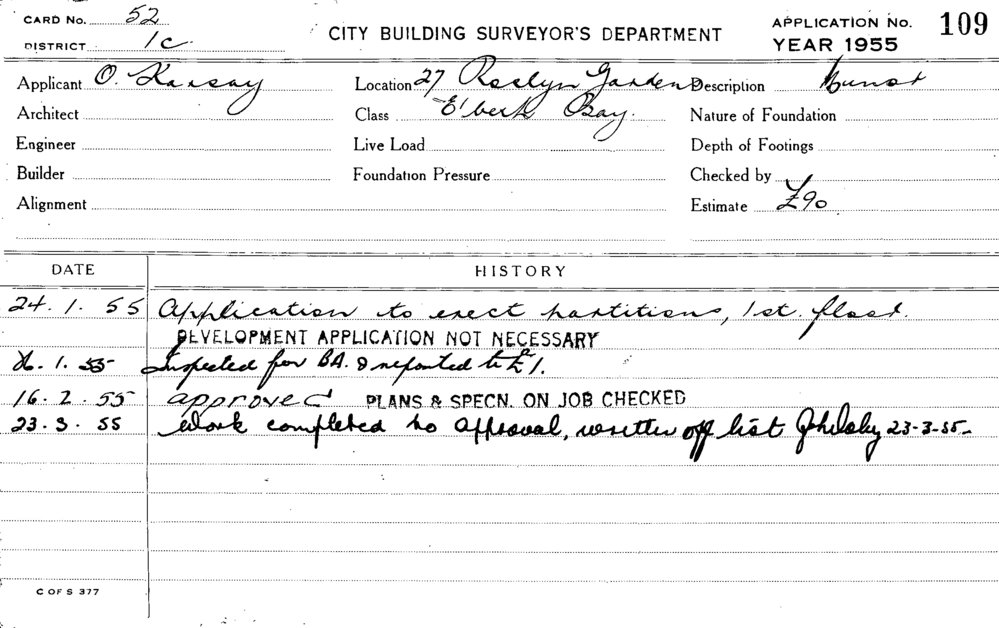 CARD No. 52
DISTRICT 1c
CITY BUILDING SURVEYOR'S DEPARTMENT
APPLICATION No. 109
YEAR 1955
Applicant O. Karsay Location 27 Roslyn Gardens Description
Architect Class E'beth Bay. Nature of Foundation
Engineer Live Load Depth of Footings
Builder Foundation Pressure Checked by
Alignment Estimate £90
DATE HISTORY
24.1.55 Application to erect partitions, 1st. floor.
DEVELOPMENT APPLICATION NOT NECESSARY
26.1.55 Inspected for BA. & reported to
16.2.55 approved PLANS & SPECN. ON JOB CHECKED
23.3.55 Work completed to approval, written off list 23-3-55-
C OF S 377